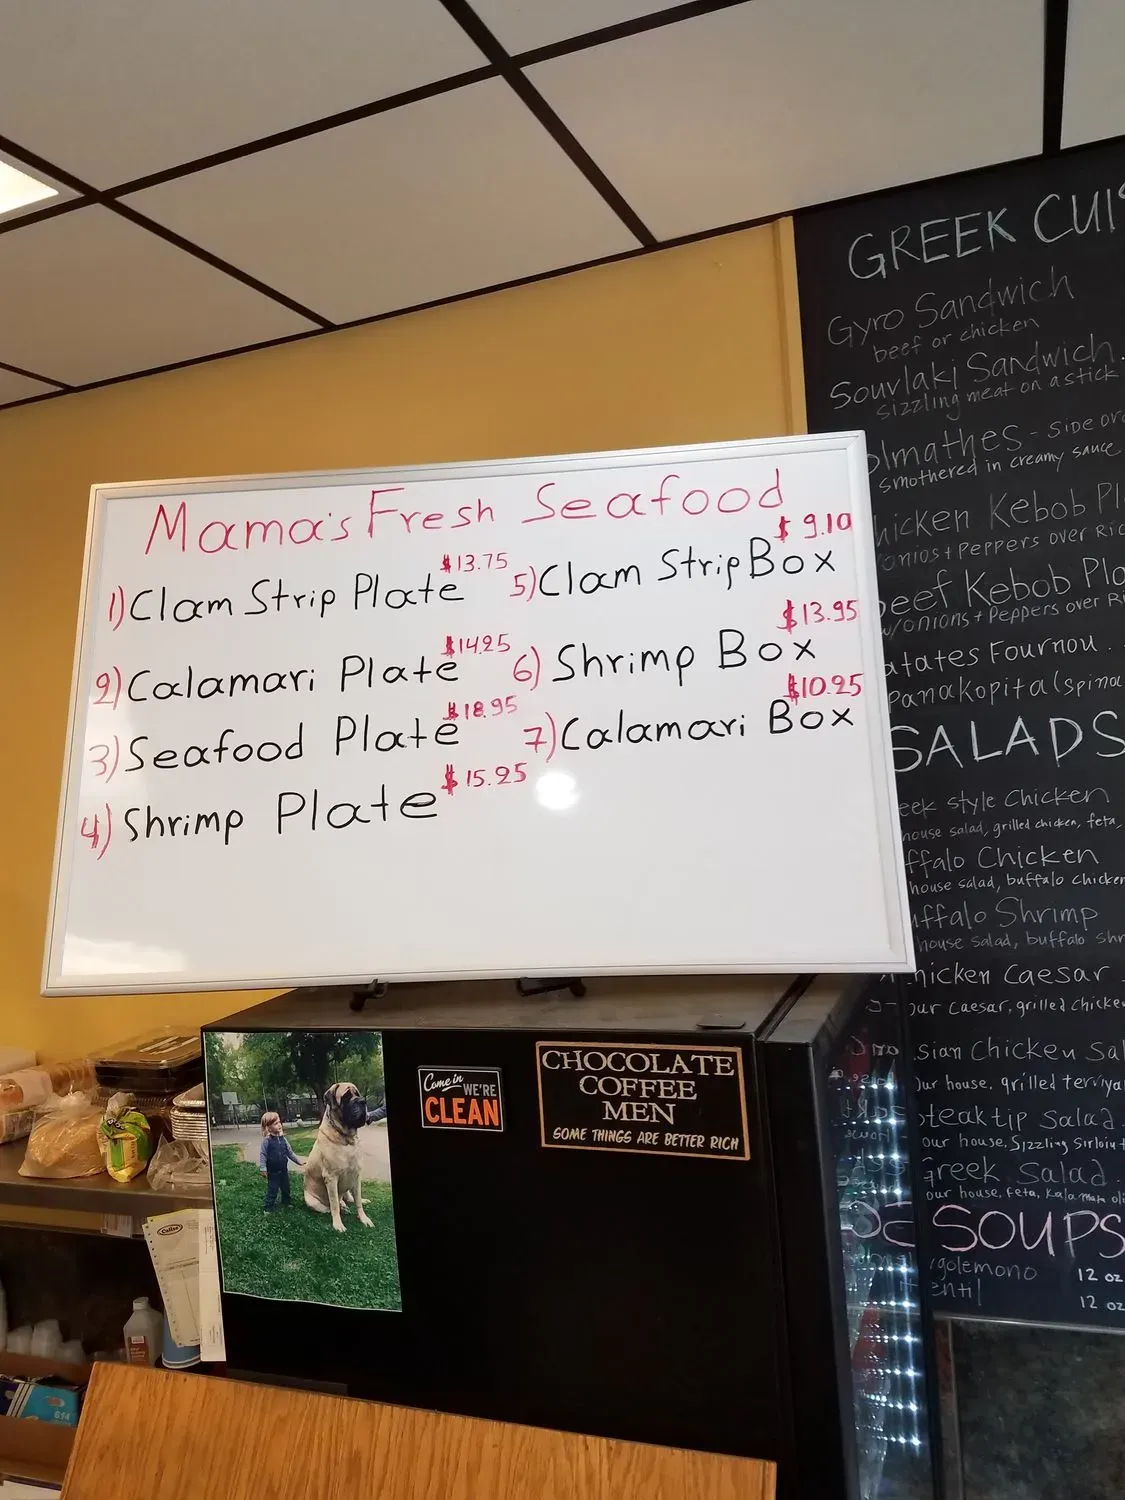 Mama's Fresh Seafood
1) Clam Strip Plate $13.75
2) Calamari Plate $14.25
3) Seafood Plate $18.95
4) Shrimp Plate $15.25
5) Clam Strip Box $9.10
6) Shrimp Box $13.95
7) Calamari Box $10.25
GREEK CUIS
Gyro Sandwich
beef or chicken
Souvlaki Sandwich
sizzling meat on a stick
olmathes - SIDE OR
smothered in creamy sauce
hicken Kebob Pl
onios + Peppers over Ric
eef Kebob Pla
w/onions + Peppers over Ri
atates Fournou
Panakopita (spina
SALADS
eek style Chicken
house salad, grilled chicken, feta,
ffalo Chicken
house salad, buffalo chicken
uffalo Shrimp
house salad, buffalo shr
hicken Caesar
our Caesar, grilled chicke
sian Chicken Sal
our house, grilled teriya
teak tip Salad
our house, Sizzling Sirloin t
Greek Salad
our house, feta, Kalamata oli
SOUPS
golemono 12 oz
entil 12 oz
Come in
WE'RE
CLEAN
CHOCOLATE
COFFEE
MEN
SOME THINGS ARE BETTER RICH